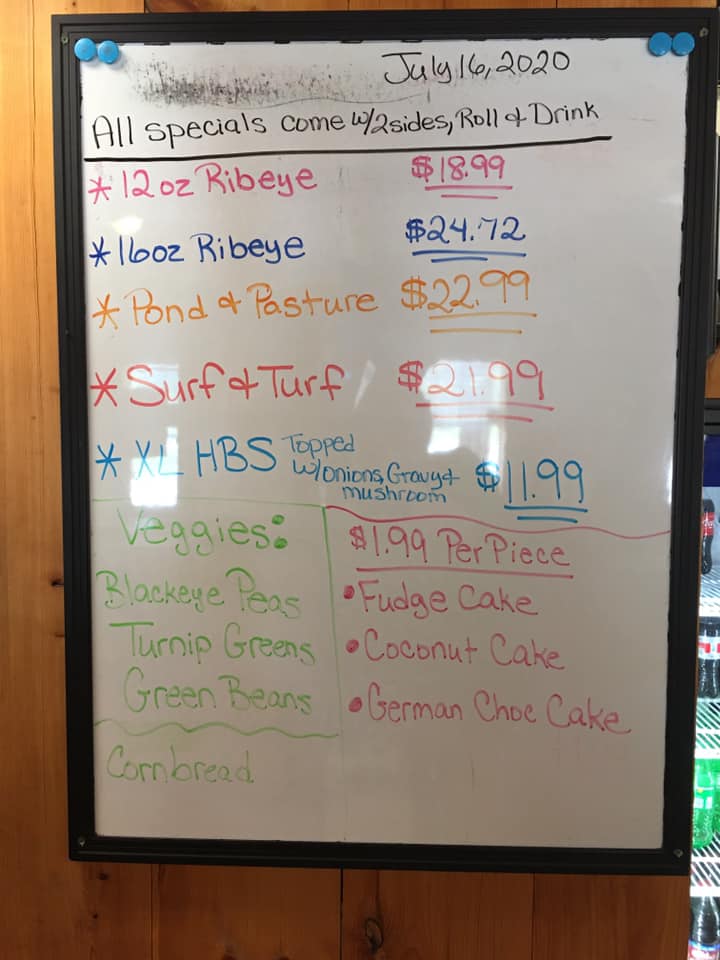 July 16, 2020
All specials come w/2sides, Roll & Drink
* 12oz Ribeye $18.99
* 16oz Ribeye $24.72
* Pond & Pasture $22.99
* Surf & Turf $21.99
* XL HBS Topped w/onions, Gravy & mushroom $11.99
Veggies:
Blackeye Peas
Turnip Greens
Green Beans
Cornbread
$1.99 Per Piece
• Fudge Cake
• Coconut Cake
• German Choc Cake